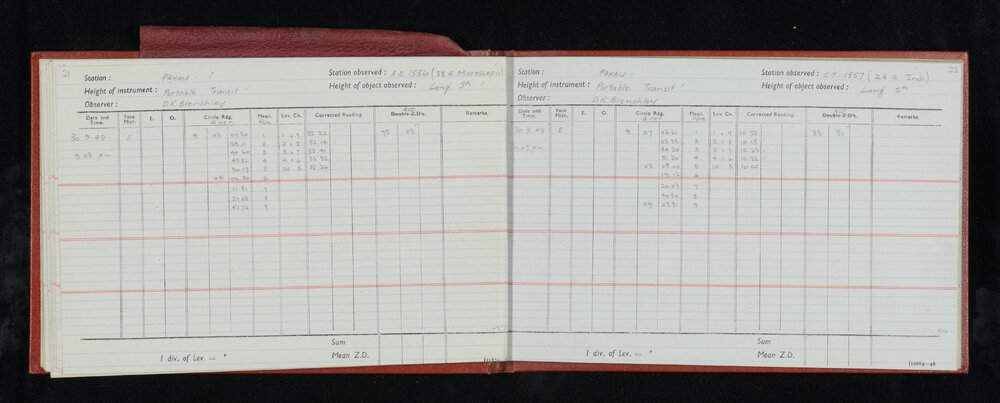 21
Station : PAHAU
Station observed : A.E. 1556 (58 G. Microscopii)
Height of instrument : Portable Transit
Height of object observed : Long. Stn
Observer : D.R. Brenchley
Date and Time. Face Micr. E. O. Circle Rdg. Mean. Lev. Cn. Corrected Reading. Double Z.D's. Remarks.
30.9.49 E 9 03 1 1 + 9 52.22 75 03
2 2 + 8 52.14
9.03 pm 40.60 3 3 + 7 52.41
4 4 + 6 52.32
56.13 5 5 52.26
04 06.50 6
11.81 7
27.03 8
42.72 9
Sum
1 div. of Lev. = "
Mean Z.D.
22
Station : PAHAU
Station observed : C.T. 1557 (24 G. Indi)
Height of instrument : Portable Transit
Height of object observed : Long. Stn
Observer : D.R. Brenchley
Date and Time. Face Micr. E. O. Circle Rdg. Mean. Lev. Cn. Corrected Reading. Double Z.D's. Remarks.
30.9.49 E 9 07 02.61 1 1 + 9 10.32 53 51
23.35 2 2 + 8 10.15
pm 44.20 3 3 + 7 10.25
31.20 4 4 + 6 10.32
08 05.00 5 5 10.00
15.12 6
26.03 7
46.80 8
09 07.91 9
Sum
1 div. of Lev. = "
Mean Z.D.